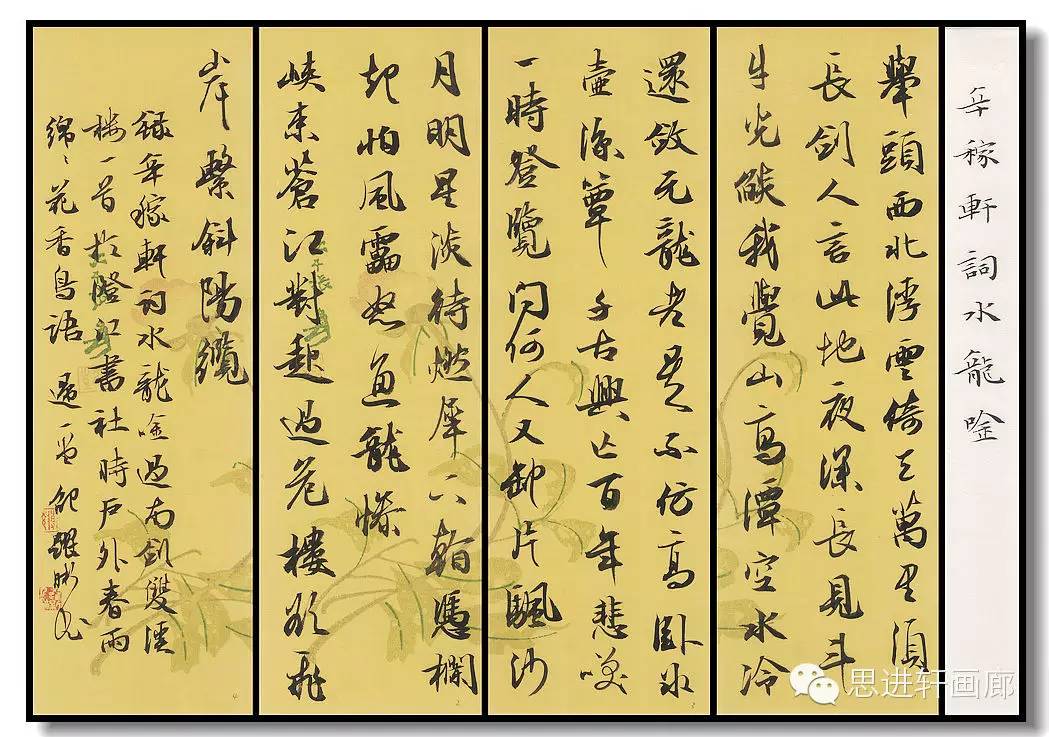 辛稼軒詞水龍唫
舉頭西北浮雲倚天萬里須
長劍人言此地夜深長見斗
牛光燄我覺山高潭空水冷
還斂元龍老矣不仿高臥冰
壺涼簟千古興亡百年悲笑
一時登覽問何人又卸片颿沙
月明星淡待燃犀下看憑欄
却怕風雷怒魚龍慘
峽束蒼江對起過危樓欲飛
岸繫斜陽纜
錄辛稼軒詞水龍唫過南劍雙溪
樓一首於澄江書社時戶外春雨
綿〻花香鳥語
思进轩画廊